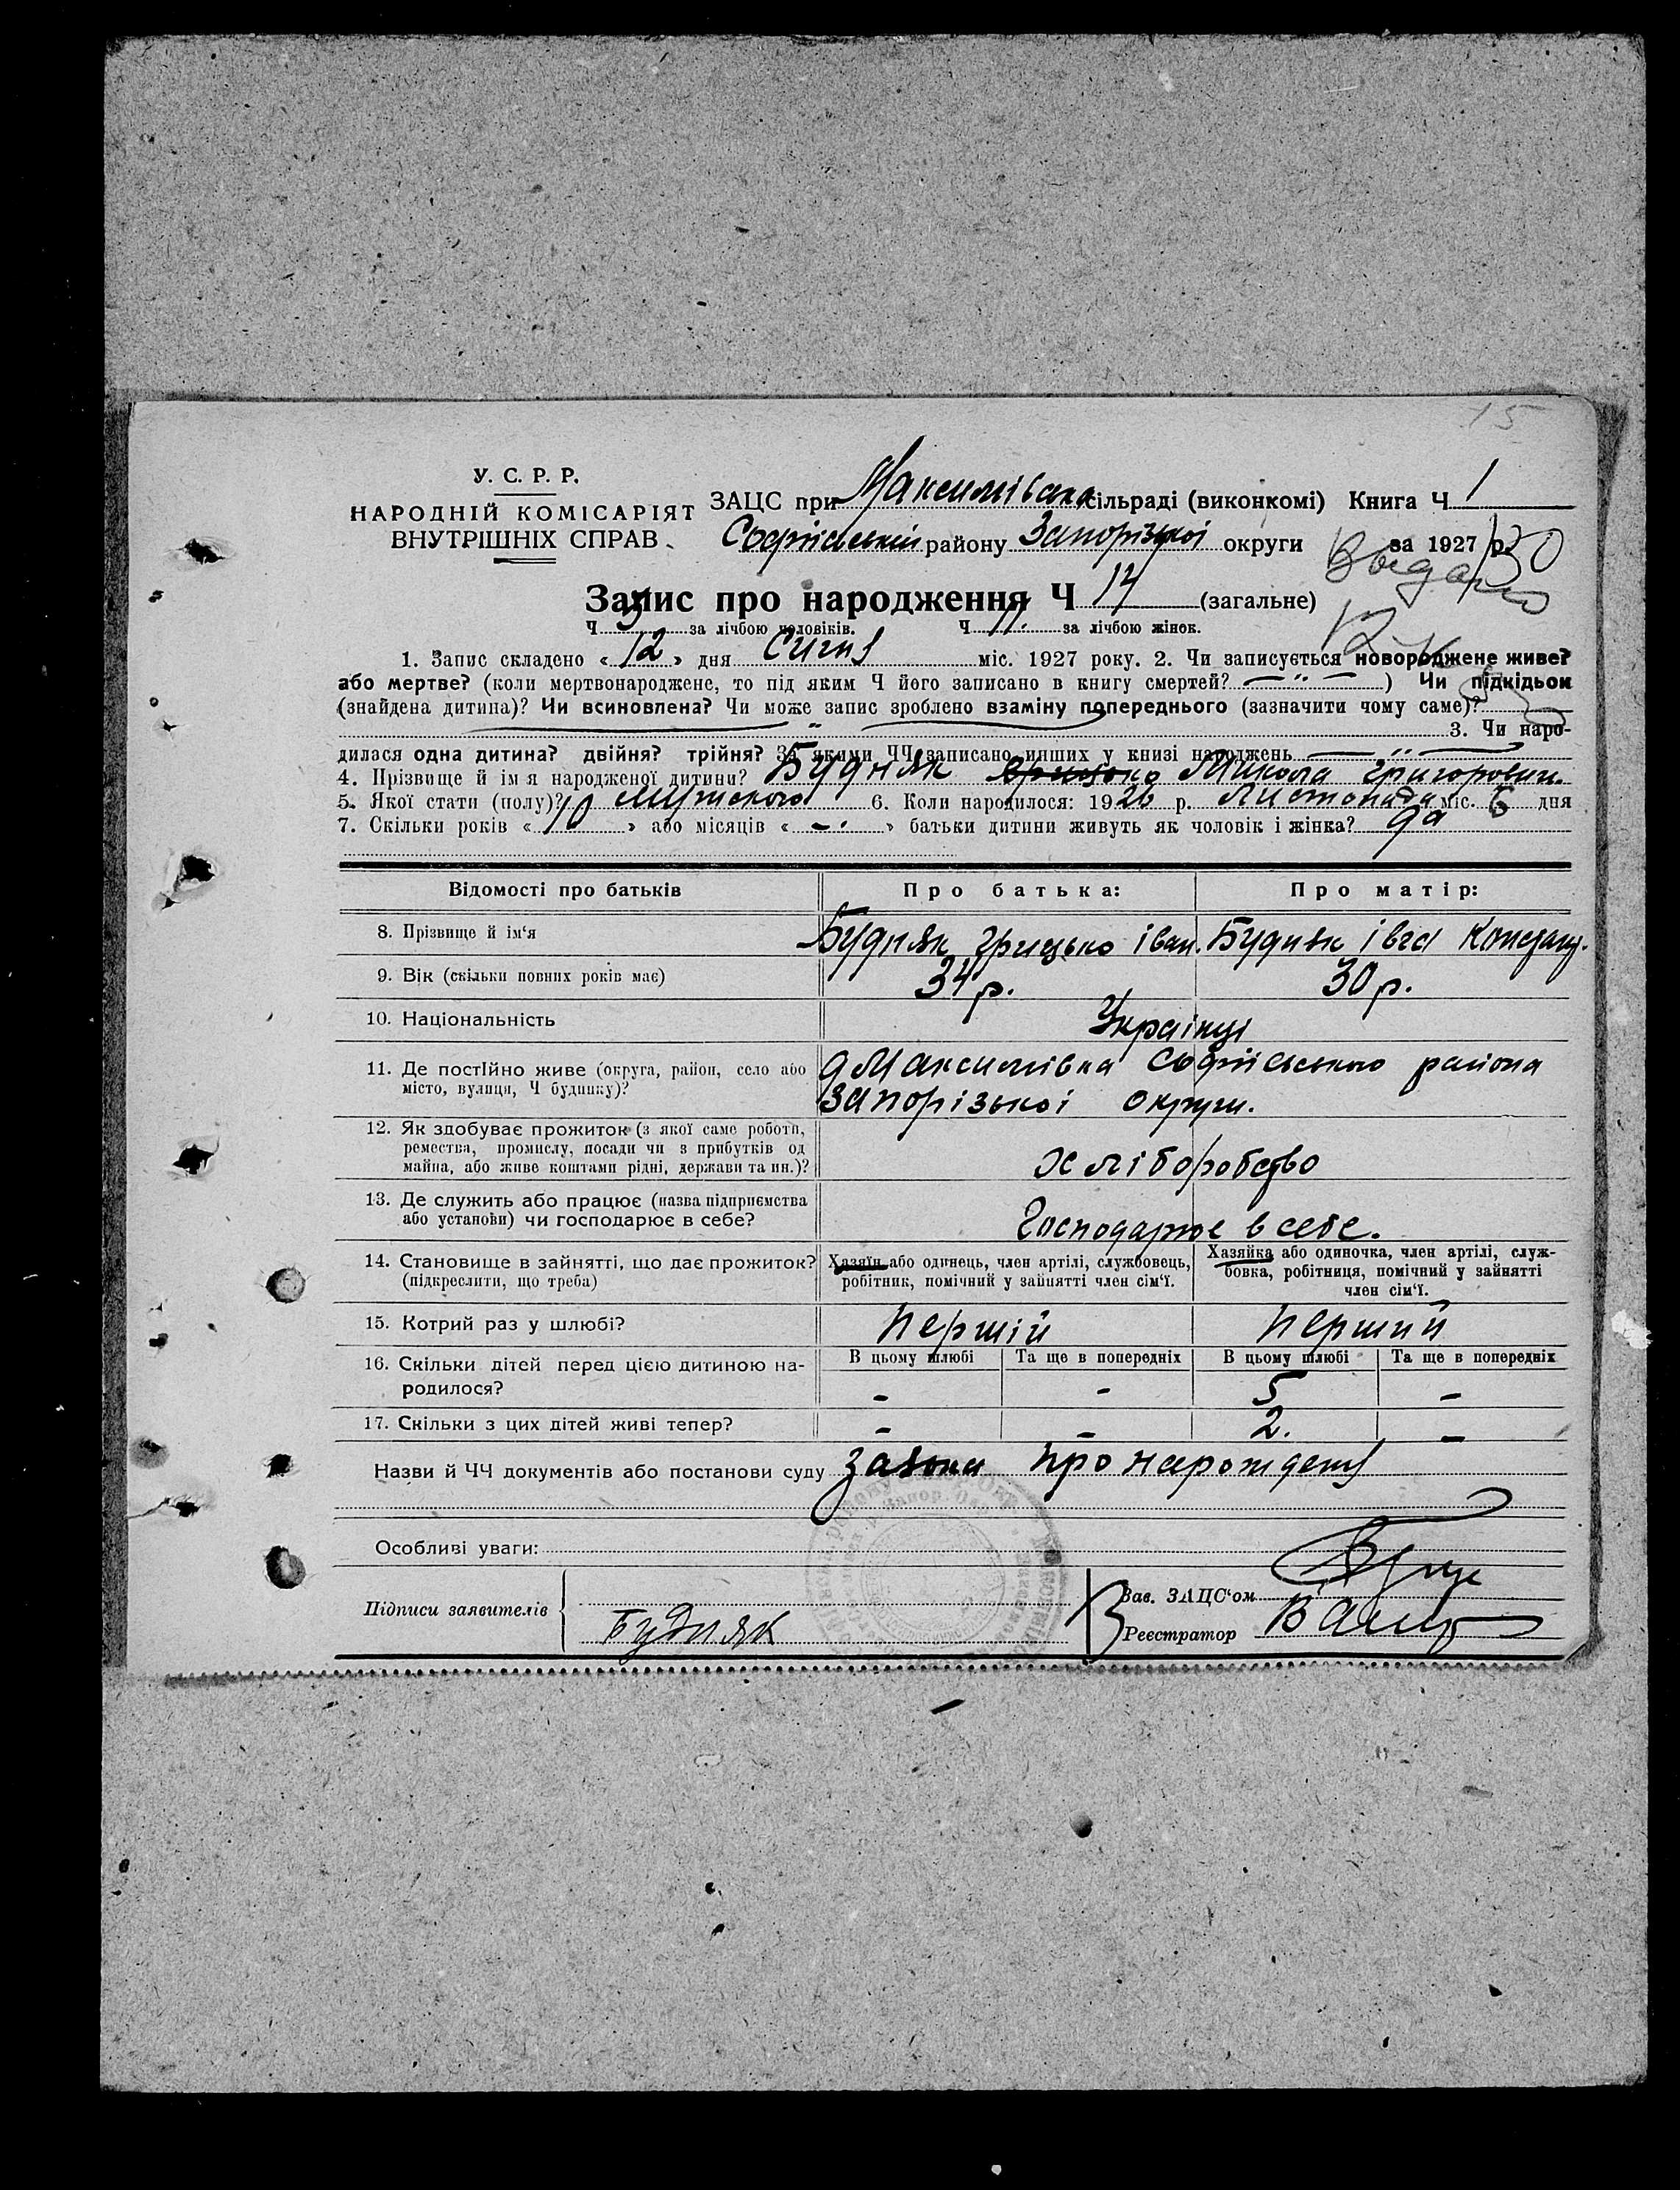 15
У. С. Р. Р.
НАРОДНІЙ КОМІСАРІЯТ
ВНУТРІШНІХ СПРАВ
ЗАЦС при Максимівська сільраді (виконкомі) Книга Ч. 1
Софіївський району Запорізької округи за 1927 р. 30
Запис про народження Ч 14 (загальне)
Ч. 3 за лічбою чоловіків. Ч. 11. за лічбою жінок.
1. Запис складено « 12 » дня Січня міс. 1927 року. 2. Чи записується новороджене живе?
або мертве? (коли мертвонароджене, то під яким Ч його записано в книгу смертей? — " — ) Чи підкідьок
(знайдена дитина)? Чи всиновлена? Чи може запис зроблено взаміну попереднього (зазначити чому саме)?
3. Чи наро-
дилася одна дитина? двійня? трійня? За якими ЧЧ записано инших у книзі народжень — " —
4. Прізвище й ім я народженої дитини? Будняк Микола Григорович.
5. Якої стати (полу)? Мужского 6. Коли народилося: 1926 р. Листопада міс. 6 дня
7. Скільки років « 10 » або місяців « - » батьки дитини живуть як чоловік і жінка? да
Відомості про батьків Про батька: Про матір:
8. Прізвище й ім'я Будняк Грицько Іван. Будняк Івга
9. Вік (скільки повних років має) 34 р. 30 р.
10. Національність Українці
11. Де постійно живе (округа, район, село або місто, вулиця, Ч будинку)?
д Максимівка Софіївського района
Запорізької округи.
12. Як здобуває прожиток (з якої саме роботи,
ремества, промислу, посади чи з прибутків од
майна, або живе коштами рідні, держави та ин.)?
Хліборобство
13. Де служить або працює (назва підприємства
або установи) чи господарює в себе?
Господарює в себе.
14. Становище в зайнятті, що дає прожиток?
(підкреслити, що треба)
Хазяїн або одинець, член артілі, службовець,
робітник, помічний у зайнятті член сім'ї.
Хазяйка або одиночка, член артілі, служ-
бовка, робітниця, помічний у зайнятті
член сім'ї.
15. Котрий раз у шлюбі? Першій Перший
16. Скільки дітей перед цією дитиною на-
родилося?
В цьому шлюбі Та ще в попередніх В цьому шлюбі Та ще в попередніх
- - 5 -
17. Скільки з цих дітей живі тепер? - - 2. -
Назви й ЧЧ документів або постанови суду Заявка про народжену
Особливі уваги:
Підписи заявителів
Будняк
Зав. ЗАЦС'ом
Реєстратор